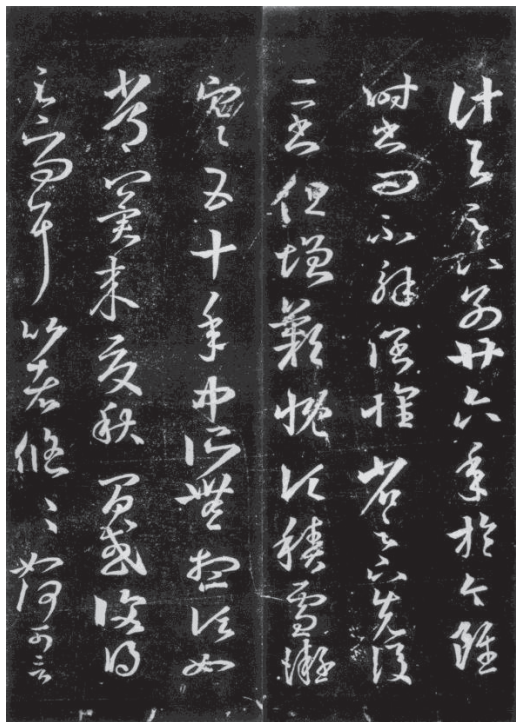 計與足下別廿六年於今雖
時書問不解闊懷省足下先後
二書但增歎慨頃積雪凝
寒五十年中所無想頃如
常冀來夏秋間或復得
足下問耳比者悠〻如何可言